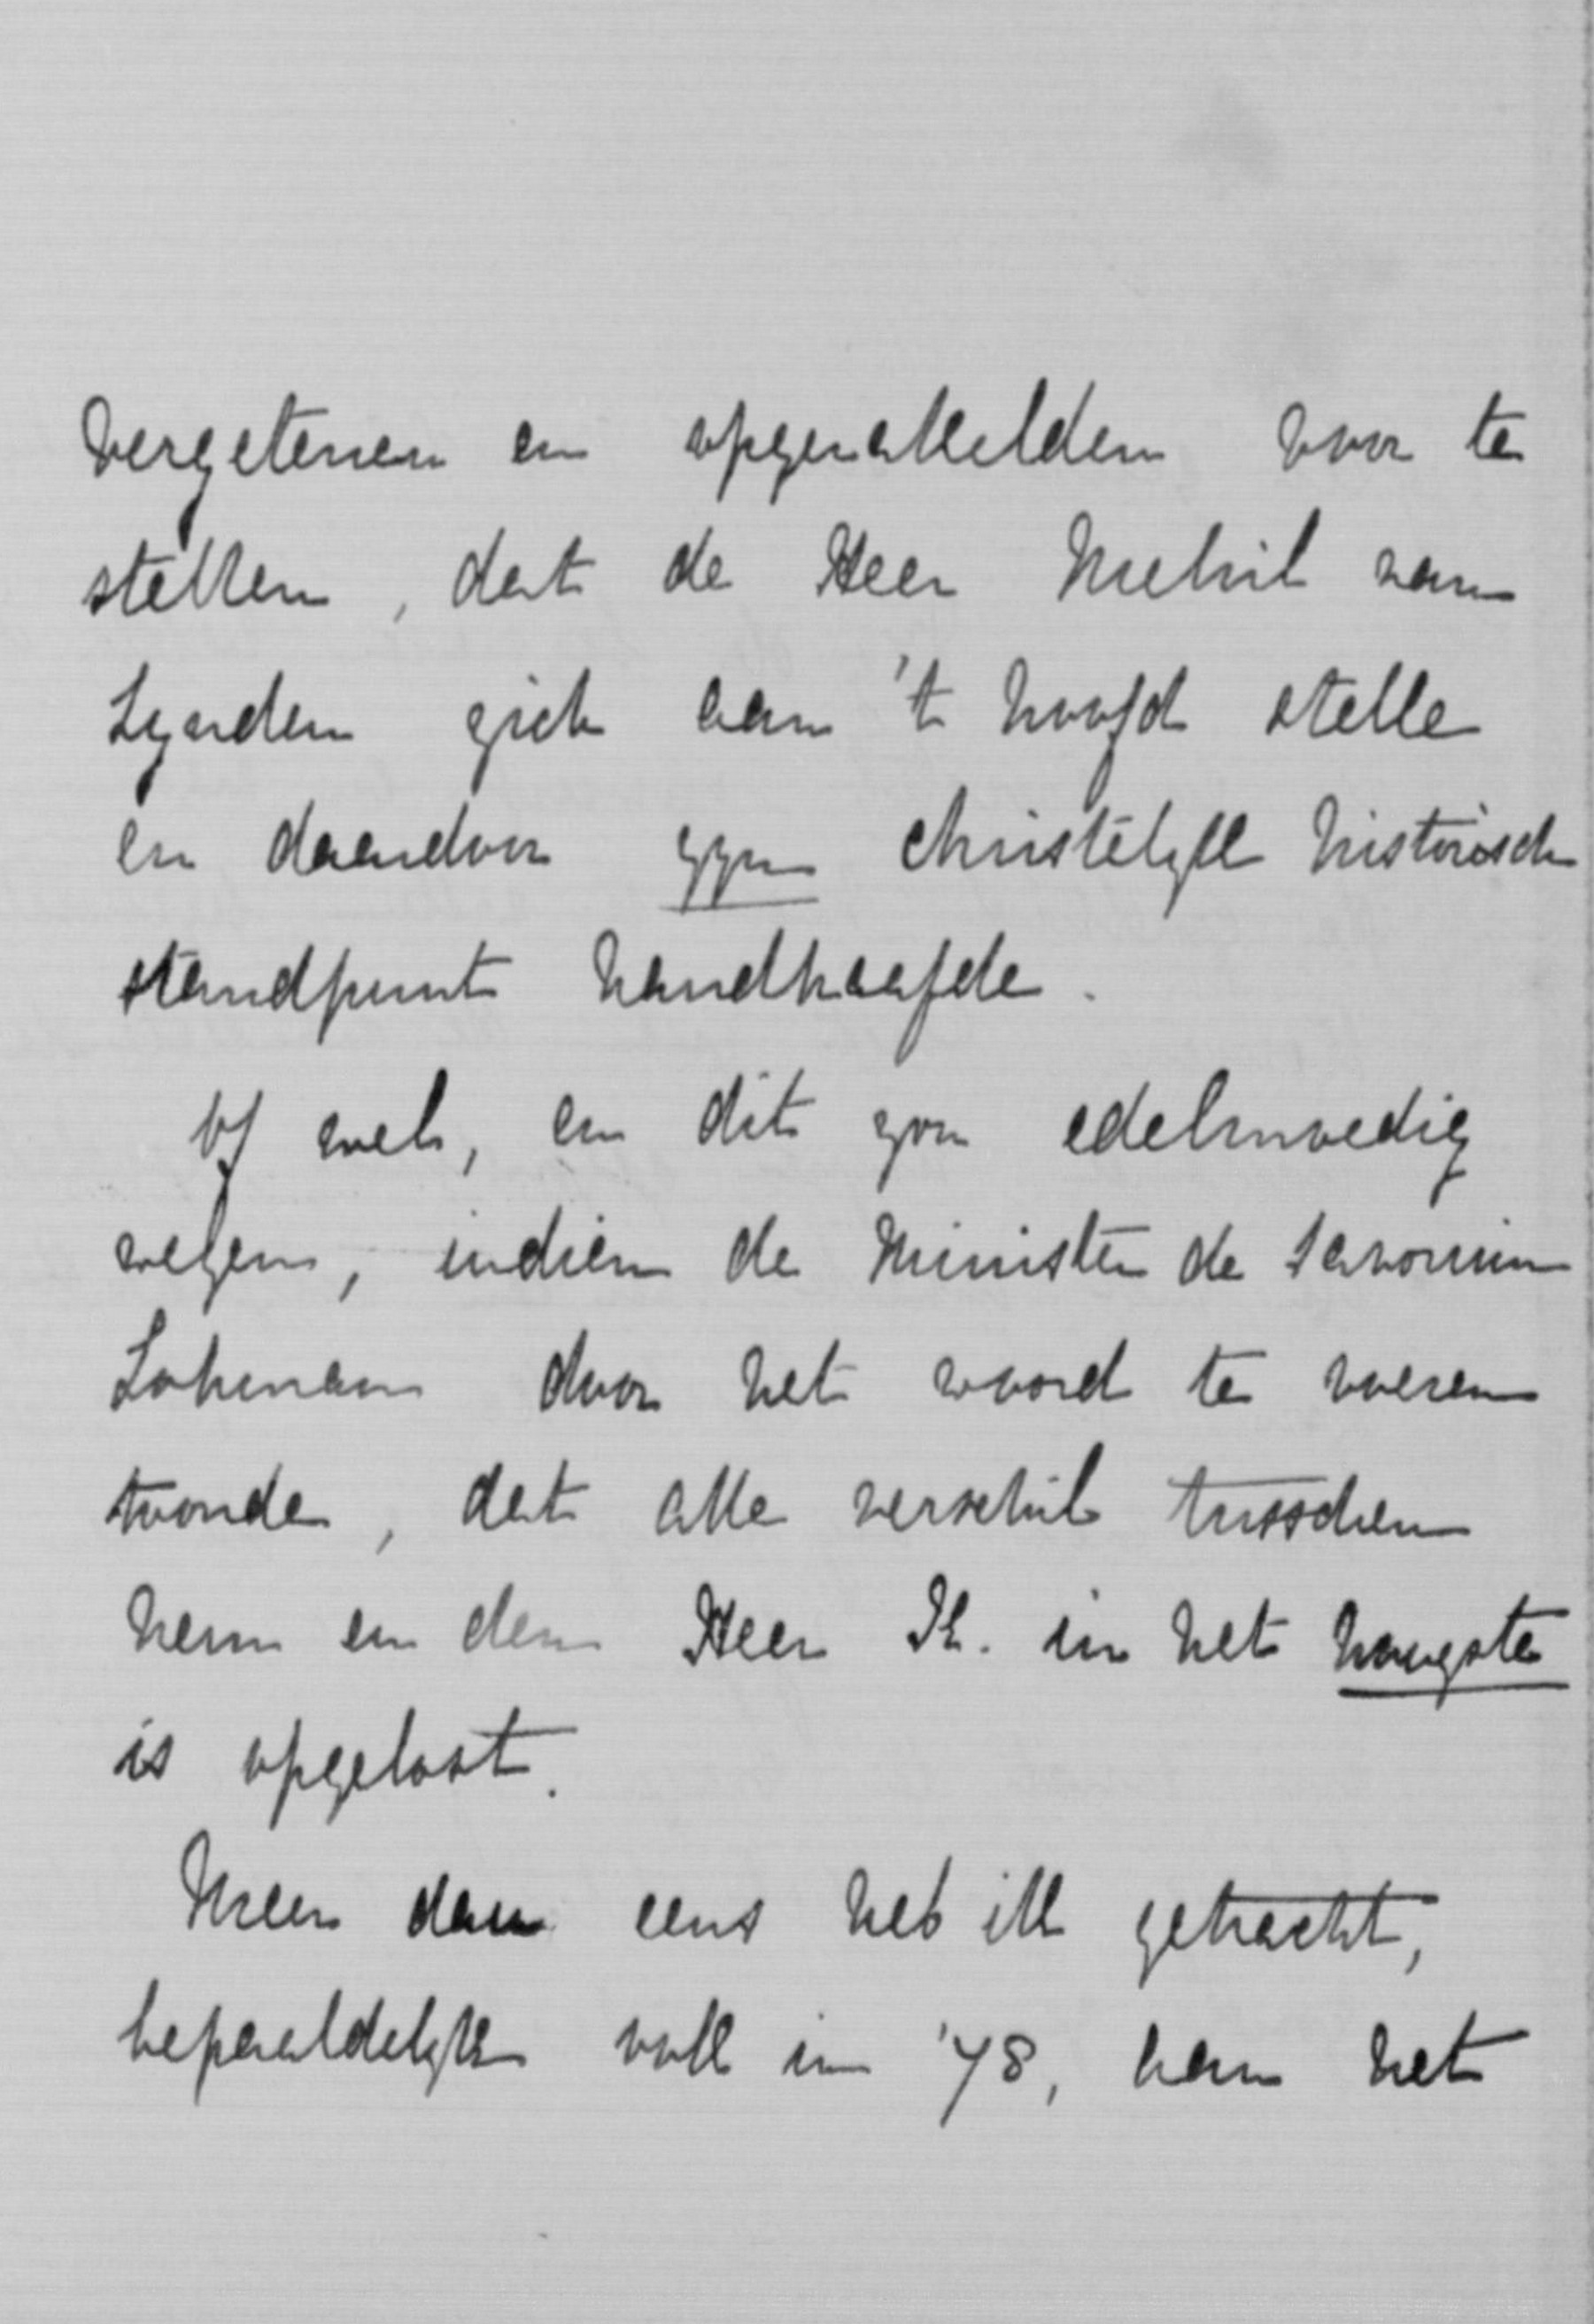 vergetenen en opgerakelden voor te
stellen, dat de Heer Mackail van
Lynden zich aan 't hoofd stelle
en daardoor zyn christelyk historisch
standpunt handhaafde.
Of wel, en dit zou edelmoedig
wezen, indien de Minister de Savornin
Lohman door het woord te voeren
toonde, dat alle verschil tusschen
hem en den Heer K. in het hoogste
is opgelost.
Meer dan eens heb ik getracht,
bepaaldelyk ook in '78, aan het